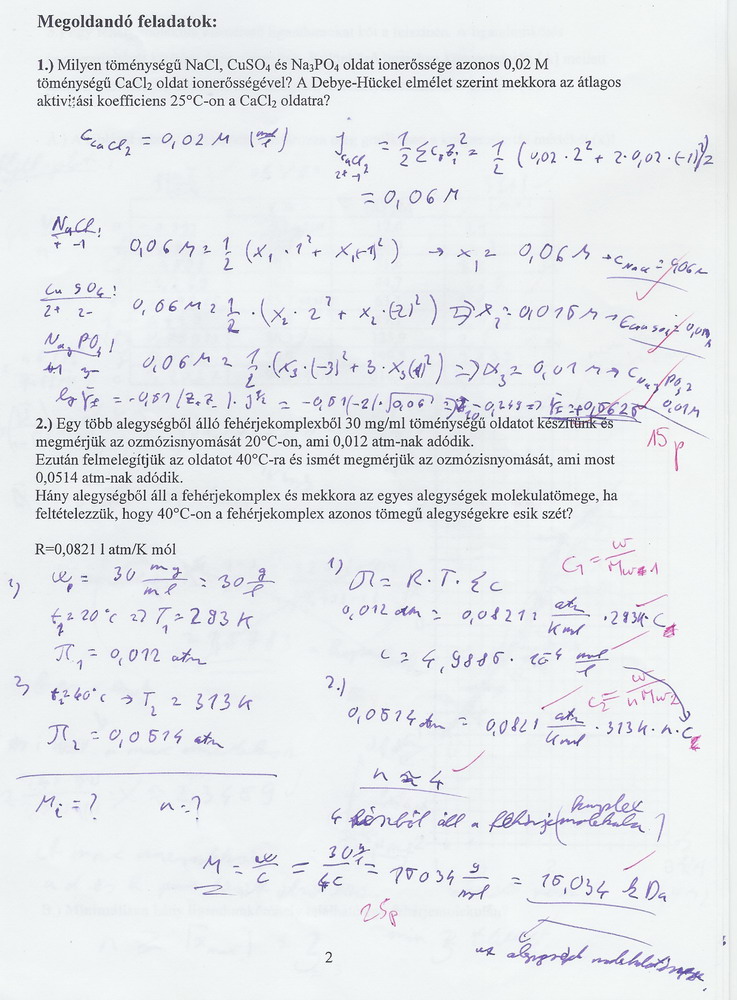 Megoldandó feladatok:
1.) Milyen töménységű NaCl, CuSO₄ és Na₃PO₄ oldat ionerőssége azonos 0,02 M
töménységű CaCl₂ oldat ionerősségével? A Debye-Hückel elmélet szerint mekkora az átlagos
aktivitási koefficiens 25°C-on a CaCl₂ oldatra?
C CaCl₂ = 0,02 M (mol/l)
I CaCl₂ = 1/2 Σcᵢzᵢ² = 1/2 (0,02 · 2² + 2 · 0,02 · (-1)²)
2+ -1
= 0,06 M
NaCl: 0,06 M = 1/2 (x₁ · 1² + x₁(-1)²) → x₁ = 0,06 M → C NaCl = 0,06 M
+ -1
CuSO₄: 0,06 M = 1/2 · (x₂ · 2² + x₂ · (-2)²) ⇒ x₂ = 0,015 M → C CuSO₄ = 0,015 M
2+ 2-
Na₃PO₄: 0,06 M = 1/2 · (x₃ · (-3)² + 3 · x₃(1)²) ⇒ x₃ = 0,01 M → C Na₃PO₄ = 0,01 M
+1 3-
15 p
2.) Egy több alegységből álló fehérjekomplexből 30 mg/ml töménységű oldatot készítünk és
megmérjük az ozmózisnyomását 20°C-on, ami 0,012 atm-nak adódik.
Ezután felmelegítjük az oldatot 40°C-ra és ismét megmérjük az ozmózisnyomását, ami most
0,0514 atm-nak adódik.
Hány alegységből áll a fehérjekomplex és mekkora az egyes alegységek molekulatömege, ha
feltételezzük, hogy 40°C-on a fehérjekomplex azonos tömegű alegységekre esik szét?
R=0,0821 l atm/K mól
1) = 30 mg/ml = 30 g/l
t₁ = 20°C ⇒ T₁ = 293 K
π₁ = 0,012 atm
2) t₂ = 40°C → T₂ = 313 K
π₂ = 0,0514 atm
Mᵢ = ? n = ?
1) π = R · T · Σc
C₁ = w/Mw1
0,012 atm = 0,0821 atm/K mol · 293K · C₁
c = 4,9885 · 10⁻⁴ mol/l
2.) C₂ = w/nMw2
0,0514 atm = 0,0821 atm/K mol · 313K · n · C
n ≈ 4
4 részből áll a fehérje (komplex molekula)
M = w/c = 30 g/l / 4c = 15034 g/mol = 15,034 kDa
25p
az alegységek molekulatömege
2